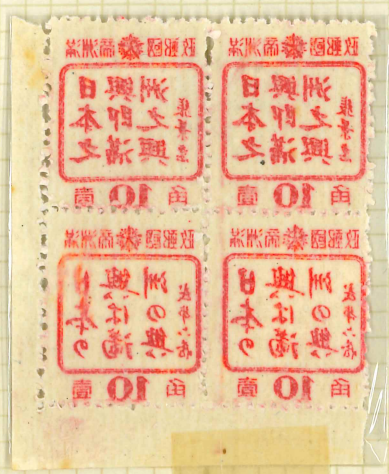 滿洲帝國郵政
日本之
興即滿
洲之興
張景惠
壹 10 角
滿洲帝國郵政
日本之
興即滿
洲之興
張景惠
壹 10 角
滿洲帝國郵政
日本の
興は滿
洲の興
武部六蔵
壹 10 角
滿洲帝國郵政
日本の
興は滿
洲の興
武部六蔵
壹 10 角